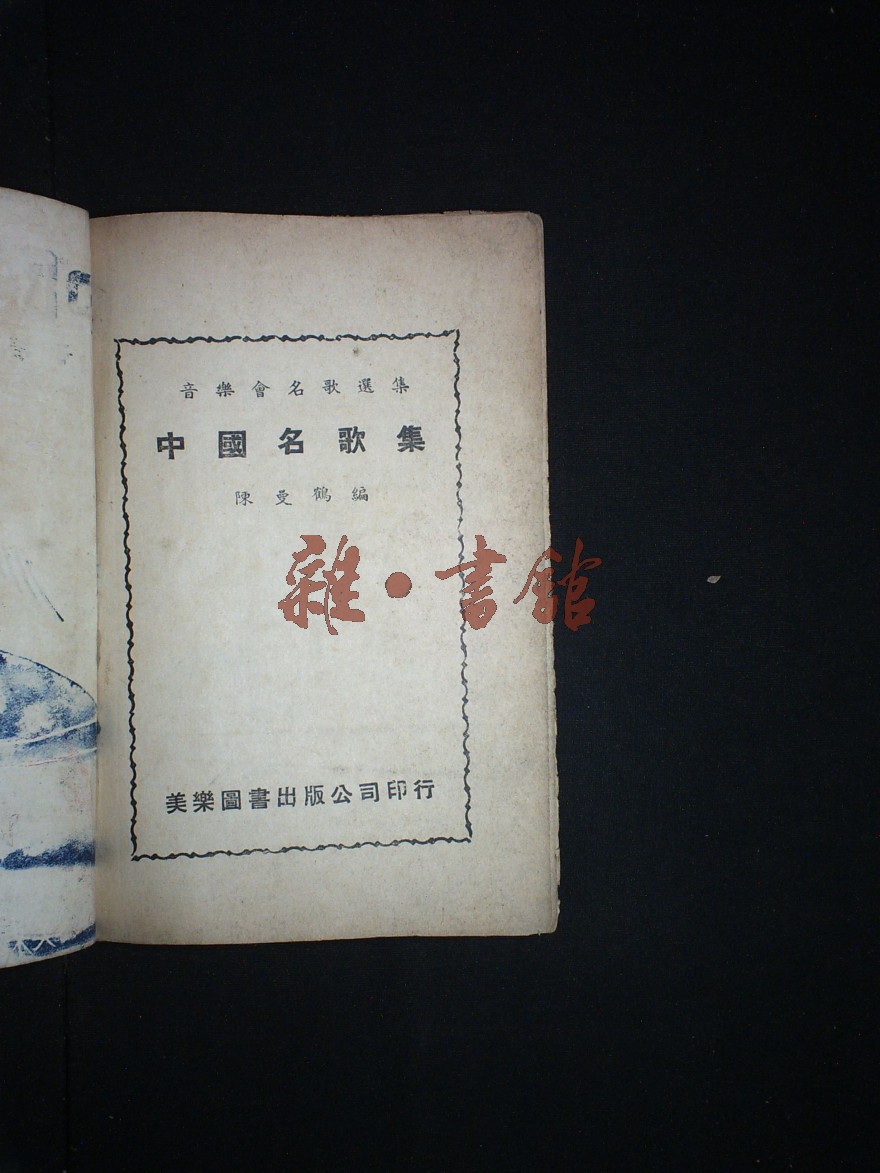 音樂會名歌選集
中國名歌集
陳曼鶴編
雜·書館
美樂圖書出版公司印行